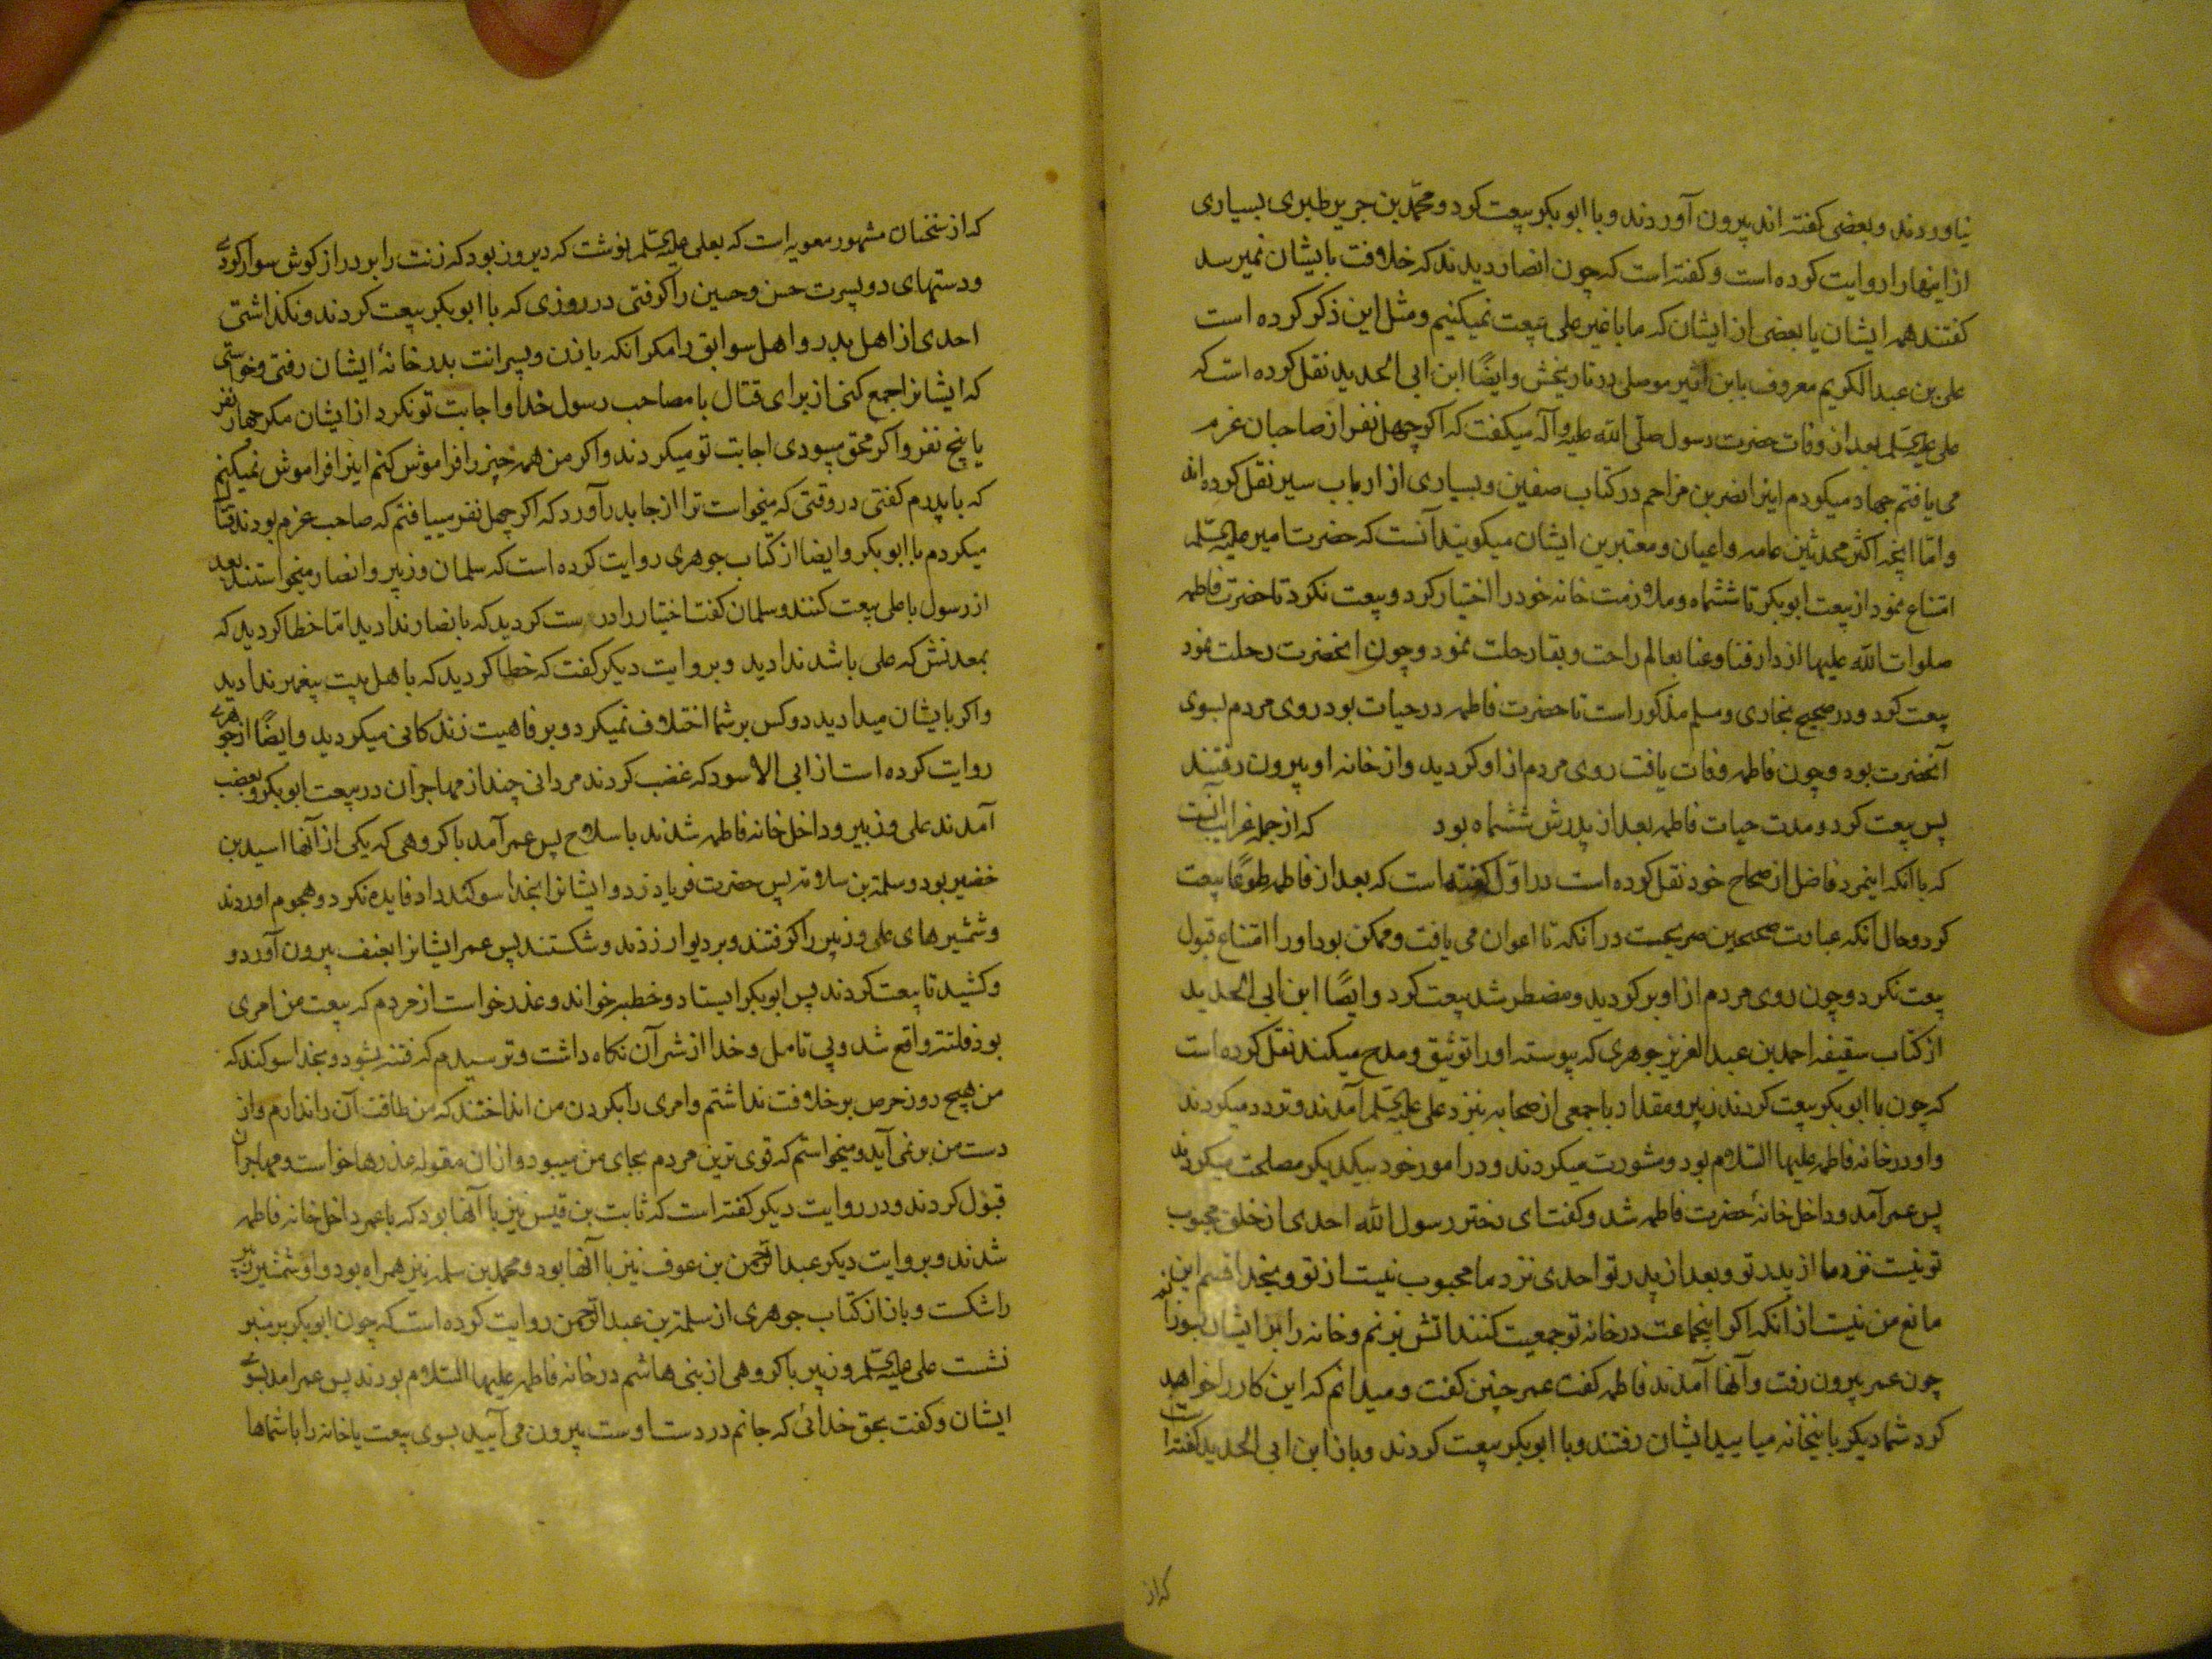 نیاوردند و بعضی کفته اند بیرون آوردند و با ابو بکر بیعت کرد و محمّد بن جریر طبری بسیاری
از اینها را روایت کرده است و کفته است که چون انصار دیدند که خلافت بایشان نمیرسد
کفتند همه ایشان یا بعضی از ایشان که ما با غیر علی بیعت نمیکنیم و مثل این ذکر کرده است
علی بن عبد الکریم معروف بابن اثیر موصلی در تاریخش و ایضًا ابن ابی الحدید نقل کرده است که
علی علیه السّلم بعد از وفات حضرت رسول صلّی الله علیه و آله میکفت که اکر چهل نفر از صاحبان عزم
می یافتم جهاد میکردم اینرا نصر بن مزاحم در کتاب صفین و بسیاری از ارباب سیر نقل کرده اند
و امّا آنچه اکثر محدثین عامه و اعیان و معتبرین ایشان میکویند آنست که حضرت امیر علیه السّلم
امتناع نمود از بیعت ابو بکر تا ششماه و ملازمت خانه خود را اختیار کرد و بیعت نکرد تا حضرت فاطمه
صلوات الله علیها از دار فنا و عنا بعالم راحت و بقا رحلت نمود و چون انحضرت رحلت نمود
بیعت کرد و در صحیح بخاری و مسلم مذکور است تا حضرت فاطمه در حیات بود روی مردم بسوی
آنحضرت بود و چون فاطمه وفات یافت روی مردم از او کردید و از خانه او بیرون رفتند
پس بیعت کرد و مدت حیات فاطمه بعد از پدرش ششماه بود که از جمله غرایب آنست
که با انکه اینمرد فاضل از صحاح خود نقل کرده است در اوّل کفته است که بعد از فاطمه طوعًا بیعت
کرد و حال انکه عبارت صحیحین صریحست در آنکه تا اعوان می یافت و ممکن بود او را امتناع قبول
بیعت نکرد و چون روی مردم از او بر کردید و مضطر شد بیعت کرد و ایضًا ابن ابی الحدید
از کتاب سقیفه احمد بن عبد العزیز جوهری که پیوسته او را توثیق و مدح میکند نقل کرده است
که چون با ابو بکر بیعت کردند زبیر و مقداد با جمعی از صحابه بنزد علی علیه السّلم آمدند و تردد میکردند
و او در خانه فاطمه علیها السّلام بود و مشورت میکردند و در امور خود بیکدیکر مصلحت میکردند
پس عمر آمد و داخل خانهٔ حضرت فاطمه شد و کفت ای دختر رسول الله احدی از خلق محبوب
تو نیست نزد ما از پدر تو و بعد از پدر تو احدی نزد ما محبوب نیست از تو و بخدا قسم این
مانع من نیست از انکه اکر اینجماعت در خانه تو جمعیت کنند اتش بزنم و خانه را بر ایشان بسوزانم
چون عمر بیرون رفت و آنها آمدند فاطمه کفت عمر چنین کفت و میدانم که این کار را خواهد
کرد شما دیکر باینخانه میایید ایشان رفتند و با ابو بکر بیعت کردند و باز ابن ابی الحدید کفته است
که از
که از سخنان مشهور معویه است که بعلی علیه السّلم نوشت که دیروز بود که زنت را بر دراز کوش سوار کردی
و دستهای دو پسرت حسن و حسین را کرفتی در روزی که با ابو بکر بیعت کردند و نکذاشتی
احدی از اهل بدر و اهل سوابق را مکر انکه با زن و پسرانت بدر خانهٔ ایشان رفتی و خواستی
که ایشانرا جمع کنی از برای قتال با مصاحب رسول خدا و اجابت تو نکرد از ایشان مکر چهار نفر
یا پنج نفر و اکر محق میبودی اجابت تو میکردند و اکر من همه چیز را فراموش کنم اینرا فراموش نمیکنم
که با پدرم کفتی در وقتی که میخواست ترا از جا بدر آورد که اکر چهل نفر مییافتم که صاحب عزم بودند قتال
میکردم با ابو بکر و ایضا از کتاب جوهری روایت کرده است که سلمان و زبیر و انصار میخواستند بعد
از رسول با علی بیعت کنند و سلمان کفت اختیار را درست کردید که بانصار ندادید امّا خطا کردید که
بمعدنش که علی باشد ندادید و بروایت دیکر کفت که خطا کردید که باهل بیت پیغمبر ندادید
و اکر بایشان میدادید دو کس بر شما اختلاف نمیکرد و برفاهیت زندکانی میکردید و ایضًا از جوهری
روایت کرده است از ابی الاسود که غضب کردند مردانی چند از مهاجران در بیعت ابو بکر و بغضب
آمدند علی و زبیر و داخل خانه فاطمه شدند با سلاح پس عمر آمد با کروهی که یکی از آنها اسید بن
خضیر بود و سلمة بن سلامه پس حضرت فریاد زد و ایشانرا بخدا سوکند داد فایده نکرد و هجوم اوردند
و شمشیرهای علی و زبیر را کرفتند و بر دیوار زدند و شکستند پس عمر ایشانرا بعنف بیرون آورد و
و کشید تا بیعت کردند پس ابو بکر ایستاد و خطبه خواند و عذر خواست از مردم که بیعت من امری
بود فلتته واقع شد و بی تامل و خدا از شر آن نکاه داشت و ترسیدم که فتنه بشود و بخدا سوکند که
من هیچ روز حرص بر خلافت نداشتم و امری را بکردن من انداختند که من طاقت آن را ندارم و از
دست من بر نمی آید و میخواستم که قوی ترین مردم بجای من میبود و از ان مقوله عذرها خواست و مهاجران
قبول کردند و در روایت دیکر کفته است که ثابت بن قیس نیز با آنها بود که با عمر داخل خانه فاطمه
شدند و بروایت دیکر عبد الرّحمن بن عوف نیز با آنها بود و محمد بن سلمه نیز همراه بود و او شمشیر زبیر
را شکست و باز از کتاب جوهری از سلمة بن عبد الرّحمن روایت کرده است که چون ابو بکر بر منبر
نشست علی علیه السّلم و زبیر با کروهی از بنی هاشم در خانه فاطمه علیها السّلام بودند پس عمر امد بسوی
ایشان و کفت بحق خدائی که جانم در دست اوست بیرون می آیید بسوی بیعت یا خانه را با شماها